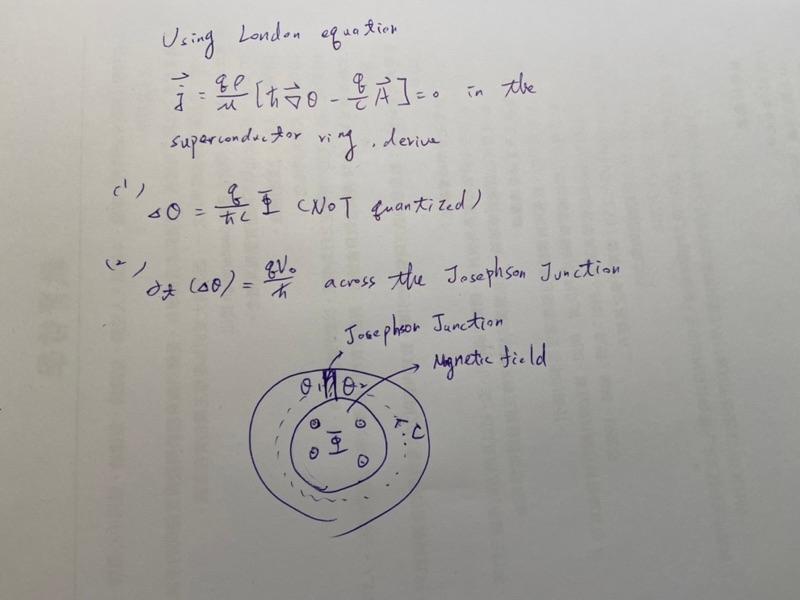 Using London equation
j⃗ = qρ/μ [ħ∇⃗θ − q/c A⃗] = 0 in the
superconductor ring, derive
(1) Δθ = q/ħc Φ (NOT quantized)
(2) ∂t (Δθ) = qV₀/ħ across the Josephson Junction
Josephson Junction
Magnetic field
θ1 θ2
Φ
C